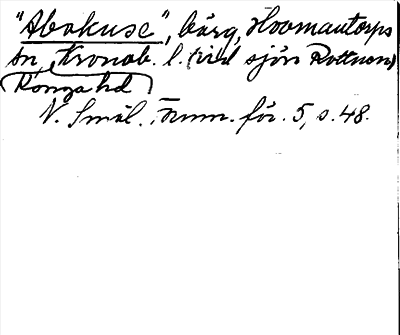 "Abokuse", bärg, Hovmantorps
sn, Kronob. l. (vid sjön Rottnen)
Konga hd
N. Smål. Fornm.för. 5, s. 48.